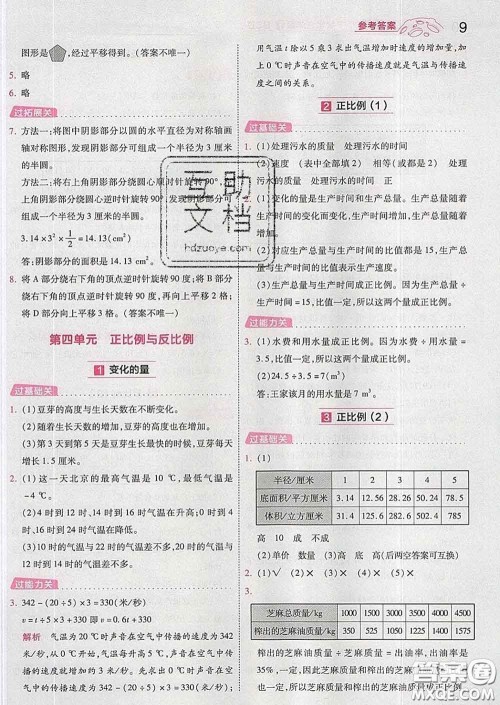 参考答案
9
图形是,经过平移得到。(答案不唯一)
5. 略
6. 略
过拓展关
7. 方法一:将图中阴影部分以圆的水平直径为对称轴画
轴对称图形,发现阴影部分可组成一个半径为3厘米
的半圆。
方法二:将右上角阴影部分绕圆心顺时针旋转90°,将
上角阴影部分绕圆心逆时针旋转90°,发现阴影部分可
组成一个半径为3厘米的半圆。
3.14×3²×1/2=14.13(cm²)
答:阴影部分的面积是14.13 cm²。
8. 将A部分绕右下角的顶点逆时针旋转90°;将B部分
绕右下角的顶点逆时针旋转90°,再向上平移2格;
将D部分向上平移3格。(答案不唯一)
第四单元 正比例与反比例
1 变化的量
过基础关
1. (1)豆芽的高度与生长天数在不断变化。
(2)豆芽的高度随着生长天数的增加也在增加。
(3)从第3天到第5天,豆芽生长速度最快,豆芽每天
生长1.5厘米。
2. (1)这一天北京的最高气温是10 ℃,最低气温是
-4 ℃。
(2)这一天中,4时到14时气温在升高。
(3)10时的气温与22时气温差不多,大约6 ℃;24时
与12时的气温差不多。
过能力关
3. 342-(20÷5)×3=330(米/秒)
v=t÷5×3+330 即v=0.6t+330
解析 气温为20 ℃时声音在空气中传播的速度为342
米/秒,从已知条件可以看出,气温从0 ℃上升到
20 ℃的过程中,气温每升高5 ℃,声音的传播速度增
加3米/秒。因此,先求出0 ℃时声音在
空气中的传播速度为342-(20÷5)×3=330(米/秒)
用气温t除以5乘3求出气温增加时速度的增加量,
加上0 ℃时声音在空气中的传播就是气温与传播速
度之间的关系。
2 正比例(1)
过基础关
1. (1)处理污水的质量 处理污水的时间
(2)速度 (表中全部填2) 相等 处理污水的速度 处理
污水的质量 处理污水的时间 正
2. (1)变化的量是生产时间和生产总量。生产总量随着
生产时间的变化而变化,生产时间增加,生产总量
增加。
(2)对应生产总量与生产时间的比值都是15,相等。
生产总量与生产时间的比值表示生产速度。
(3)生产总量与生产时间成正比例。
过能力关
3. (1)水费和用水量成正比例。因为水费÷用水量=
3.5,比值一定,所以这两个量成正比例。
(2)24.5÷3.5=7(m³)
答:王家该月的用水量是7 m³。
3 正比例(2)
过基础关
1. (1)
半径/厘米 1 2 3 4 5
底面积/平方厘米 3.14 12.56 28.26 50.24 78.5
体积/立方厘米 31.4 125.6 282.6 502.4 785
高 10 成 不成
(2)单价 数量 (3)高 底 (后两空答案可互换)
2. (1)√ (2)× (3)√ (4)×
3.
芝麻总质量/kg 1000 1100 1200 1300 1400
榨出的芝麻油质量/kg 350 385 420 455 490
榨出的芝麻油质量÷芝麻总质量=出油率,出油率是
35%,一定,因此榨出的芝麻油质量和芝麻总质量
一定,因此榨出的芝麻油质量和芝麻总质量成正比例
互助
文档
hdzuoye.com
答案圈
MXQE.COM